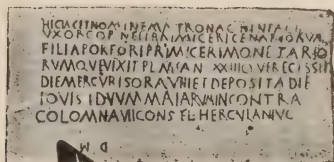 HIC IACIT NOMINE MATRONA C HIN FALI
VXOR CORNELI PRIMICERI CENARIORVM
FILIA PORFORI PRIMICERI MONETARIO
RVM QVE VIXIT PL M AN XXIII
DIE MERCVRIS ORA VIII ET DEPOSITA DIE
IOVIS IDVVM MAIARVM IN CONTRA
COLOMNA VII CONS FL HERCVLANI VC
D M